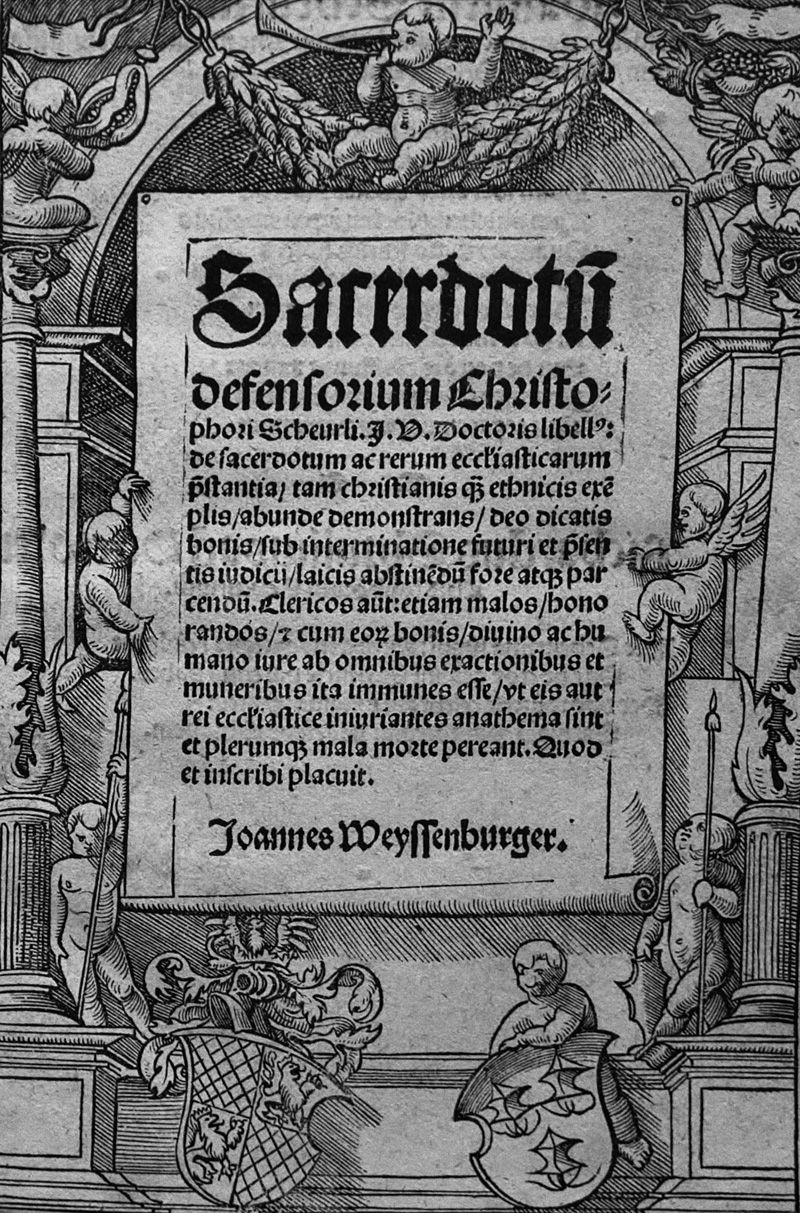 Sacerdotū
defensorium Christo-
phori Scheurli. J. V. Doctoris libellꝰ:
de sacerdotum ac rerum eccl̄iasticarum
p̄stantia/ tam christianis qȝ̄ ethnicis exē
plis/abunde demonstrans/ deo dicatis
bonis/sub interminatione futuri et p̄sen
tis iudicij/laicis abstinēdū fore atqȝ par
cendū. Clericos aūt: etiam malos/hono
randos/⁊ cum eoꝝ bonis/diuino ac hu
mano iure ab omnibus exactionibus et
muneribus ita immunes esse/vt eis aut
rei eccl̄iastice iniuriantes anathema sint
et plerumqȝ mala morte pereant. Quod
et inscribi placuit.
Joannes Weyssenburger.